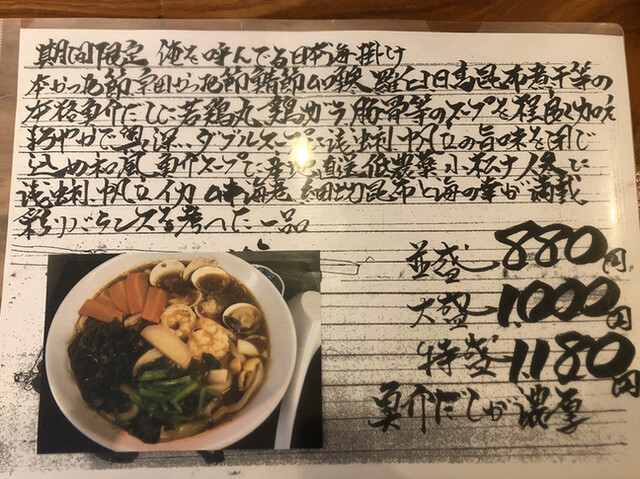 期間限定 俺を呼んでる日本海掛け
本かつお節宗田かつお節鯖節ムロ鯵、羅臼日高昆布煮干等の
本格魚介だしに若鶏丸、鶏ガラ豚骨等のスープを程良く加え
まろやかで奥深いダブルスープに浅蜊、帆立の旨味を閉じ
込め和風魚介スープに産地直送低農薬小松ナ人参に
浅蜊、帆立イカ 海老、細切昆布と海の幸が満載
彩りバランスを考へた一品
並盛 880円
大盛 1.000円
特盛 1.180円
魚介だしが濃厚